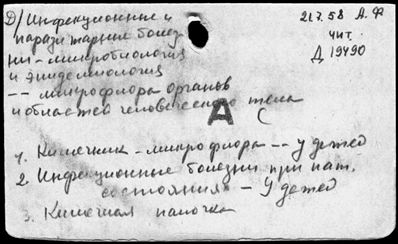 Д) Инфекционные и
паразитарные болез-
ни - микробиология
и эпидемиология
-- микрофлора органов
и областей человеческого тела
21.7.58 А. Ф
чит.
Д 19490
А
1. Кишечник - микрофлора -- у детей
2. Инфекционные болезни при пат.
состояниях - У детей
3. Кишечная палочка